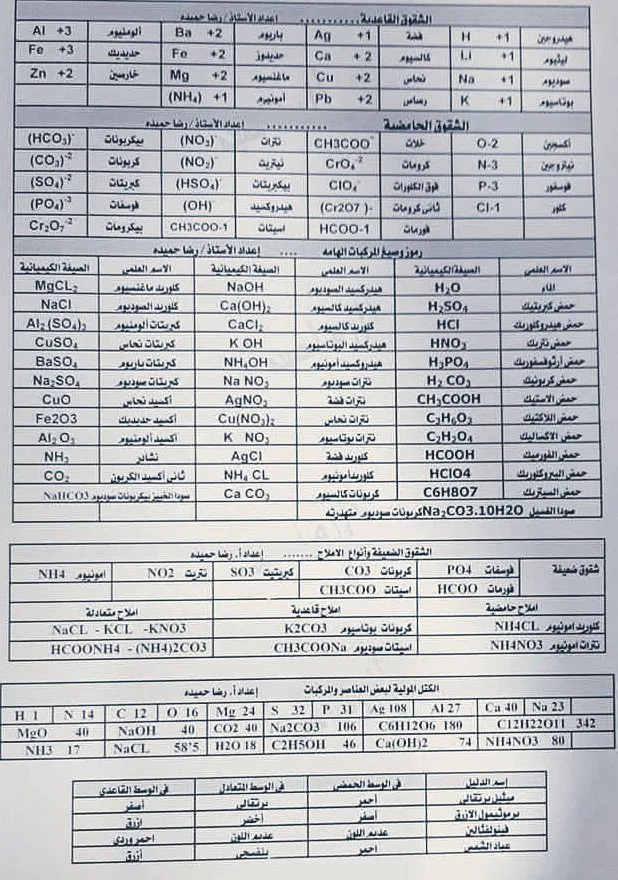 الشقوق القاعدية ............ إعداد الأستاذ/ رضا حميده
هيدروجين H +1 فضة Ag +1 باريوم Ba +2 ألومنيوم Al +3
ليثيوم Li +1 كالسيوم Ca +2 حديدوز Fe +2 حديديك Fe +3
صوديوم Na +1 نحاس Cu +2 ماغنسيوم Mg +2 خارصين Zn +2
بوتاسيوم K +1 رصاص Pb +2 أمونيوم (NH₄) +1
الشقوق الحامضية ............ إعداد الأستاذ/ رضا حميده
أكسجين O-2 خلات CH3COO⁻ نترات (NO₃)⁻ بيكربونات (HCO₃)⁻
نيتروجين N-3 كرومات CrO₄⁻² نيتريت (NO₂)⁻ كربونات (CO₃)⁻²
فوسفور P-3 فوق الكلورات ClO₄⁻ بيكبريتات (HSO₄)⁻ كبريتات (SO₄)⁻²
كلور Cl-1 ثانى كرومات (Cr2O7 )- هيدروكسيد (OH)⁻ فوسفات (PO₄)⁻³
فورمات HCOO-1 اسيتات CH3COO-1 بيكرومات Cr₂O₇⁻²
رموز وصيغ المركبات الهامه .... إعداد الأستاذ/ رضا حميده
الاسم العلمى الصيغة الكيميائية الاسم العلمى الصيغة الكيميائية الاسم العلمى الصيغة الكيميائية
الماء H₂O هيدركسيد الصوديوم NaOH كلوريد ماغنسيوم MgCL₂
حمض كبريتيك H₂SO₄ هيدركسيد كالسيوم Ca(OH)₂ كلوريد الصوديوم NaCl
حمض هيدروكلوريك HCl كلوريد كالسيوم CaCl₂ كبريتات ألومنيوم Al₂ (SO₄)₃
حمض نتريك HNO₃ هيدركسيد البوتاسيوم K OH كبريتات نحاس CuSO₄
حمض أرثوفسفوريك H₃PO₄ هيدروكسيد أمونيوم NH₄OH كبريتات باريوم BaSO₄
حمض كربونيك H₂ CO₃ نترات سوديوم Na NO₃ كبريتات سوديوم Na₂SO₄
حمض الاستيك CH₃COOH نترات فضة AgNO₃ أكسيد نحاس CuO
حمض اللاكتيك C₃H₆O₃ نترات نحاس Cu(NO₃)₂ أكسيد حديديك Fe2O3
حمض الاكساليك C₂H₂O₄ نترات بوتاسيوم K NO₃ أكسيد ألومنيوم Al₂ O₃
حمض الفورميك HCOOH كلوريد فضة AgCl نشادر NH₃
حمض البيروكلوريك HClO4 كلوريد أمونيوم NH₄ CL ثانى أكسيد الكربون CO₂
حمض السيتريك C6H8O7 كربونات كالسيوم Ca CO₃ سودا الخبيز بيكربونات سوديوم NaHCO3
سودا الغسيل Na₂CO3.10H2O كربونات سوديوم متهدرته
الشقوق الضعيفة وأنواع الاملاح ....... إعداد أ. رضا حميده
شقوق ضعيفة فوسفات PO4 كربونات CO3 كبريتيت SO3 نتريت NO2 امونيوم NH4
فورمات HCOO اسيتات CH3COO
املاح حامضية املاح قاعدية املاح متعادلة
كلوريد امونيوم NH4CL كربونات بوتاسيوم K2CO3 NaCL - KCL -KNO3
نترات امونيوم NH4NO3 اسيتات سوديوم CH3COONa HCOONH4 - (NH4)2CO3
الكتل المولية لبعض العناصر والمركبات إعداد أ. رضا حميده
H 1 N 14 C 12 O 16 Mg 24 S 32 P 31 Ag 108 Al 27 Ca 40 Na 23
MgO 40 NaOH 40 CO2 40 Na2CO3 106 C6H12O6 180 C12H22O11 342
NH3 17 NaCL 58'5 H2O 18 C2H5OH 46 Ca(OH)2 74 NH4NO3 80
إسم الدليل فى الوسط الحمضى فى الوسط المتعادل فى الوسط القاعدى
ميثيل برتقالى أحمر برتقالى أصفر
بروموثيمول الازرق أصفر أخضر ازرق
فينولفثالين عديم اللون عديم اللون احمر وردى
عباد الشمس احمر بنفسجى أزرق